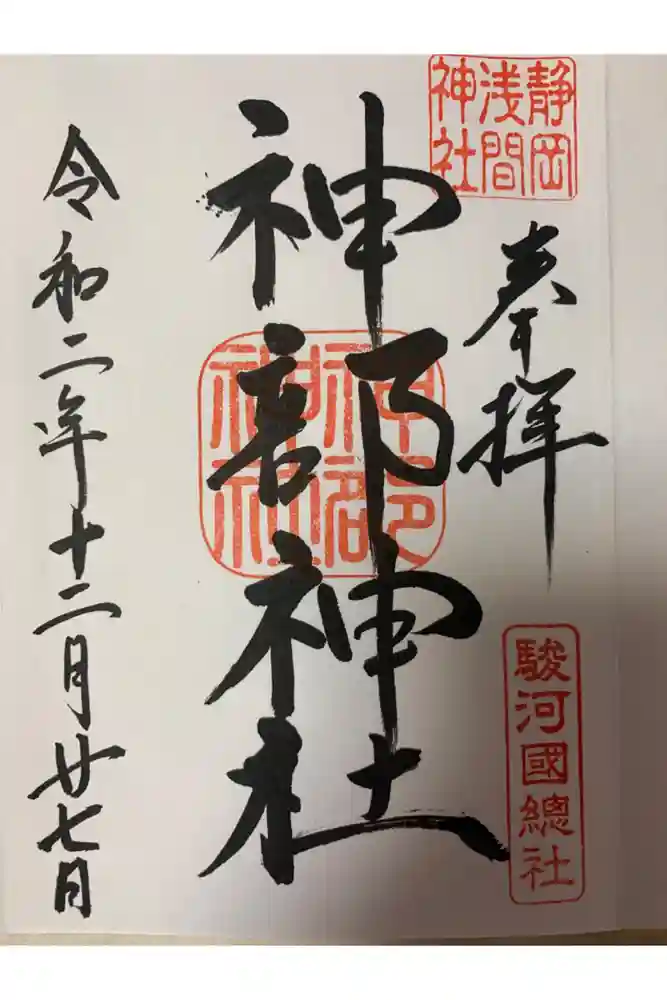 静岡
浅間
神社
奉拝
駿河國總社
神部神社
神部
神社
令和二年十二月廿七日